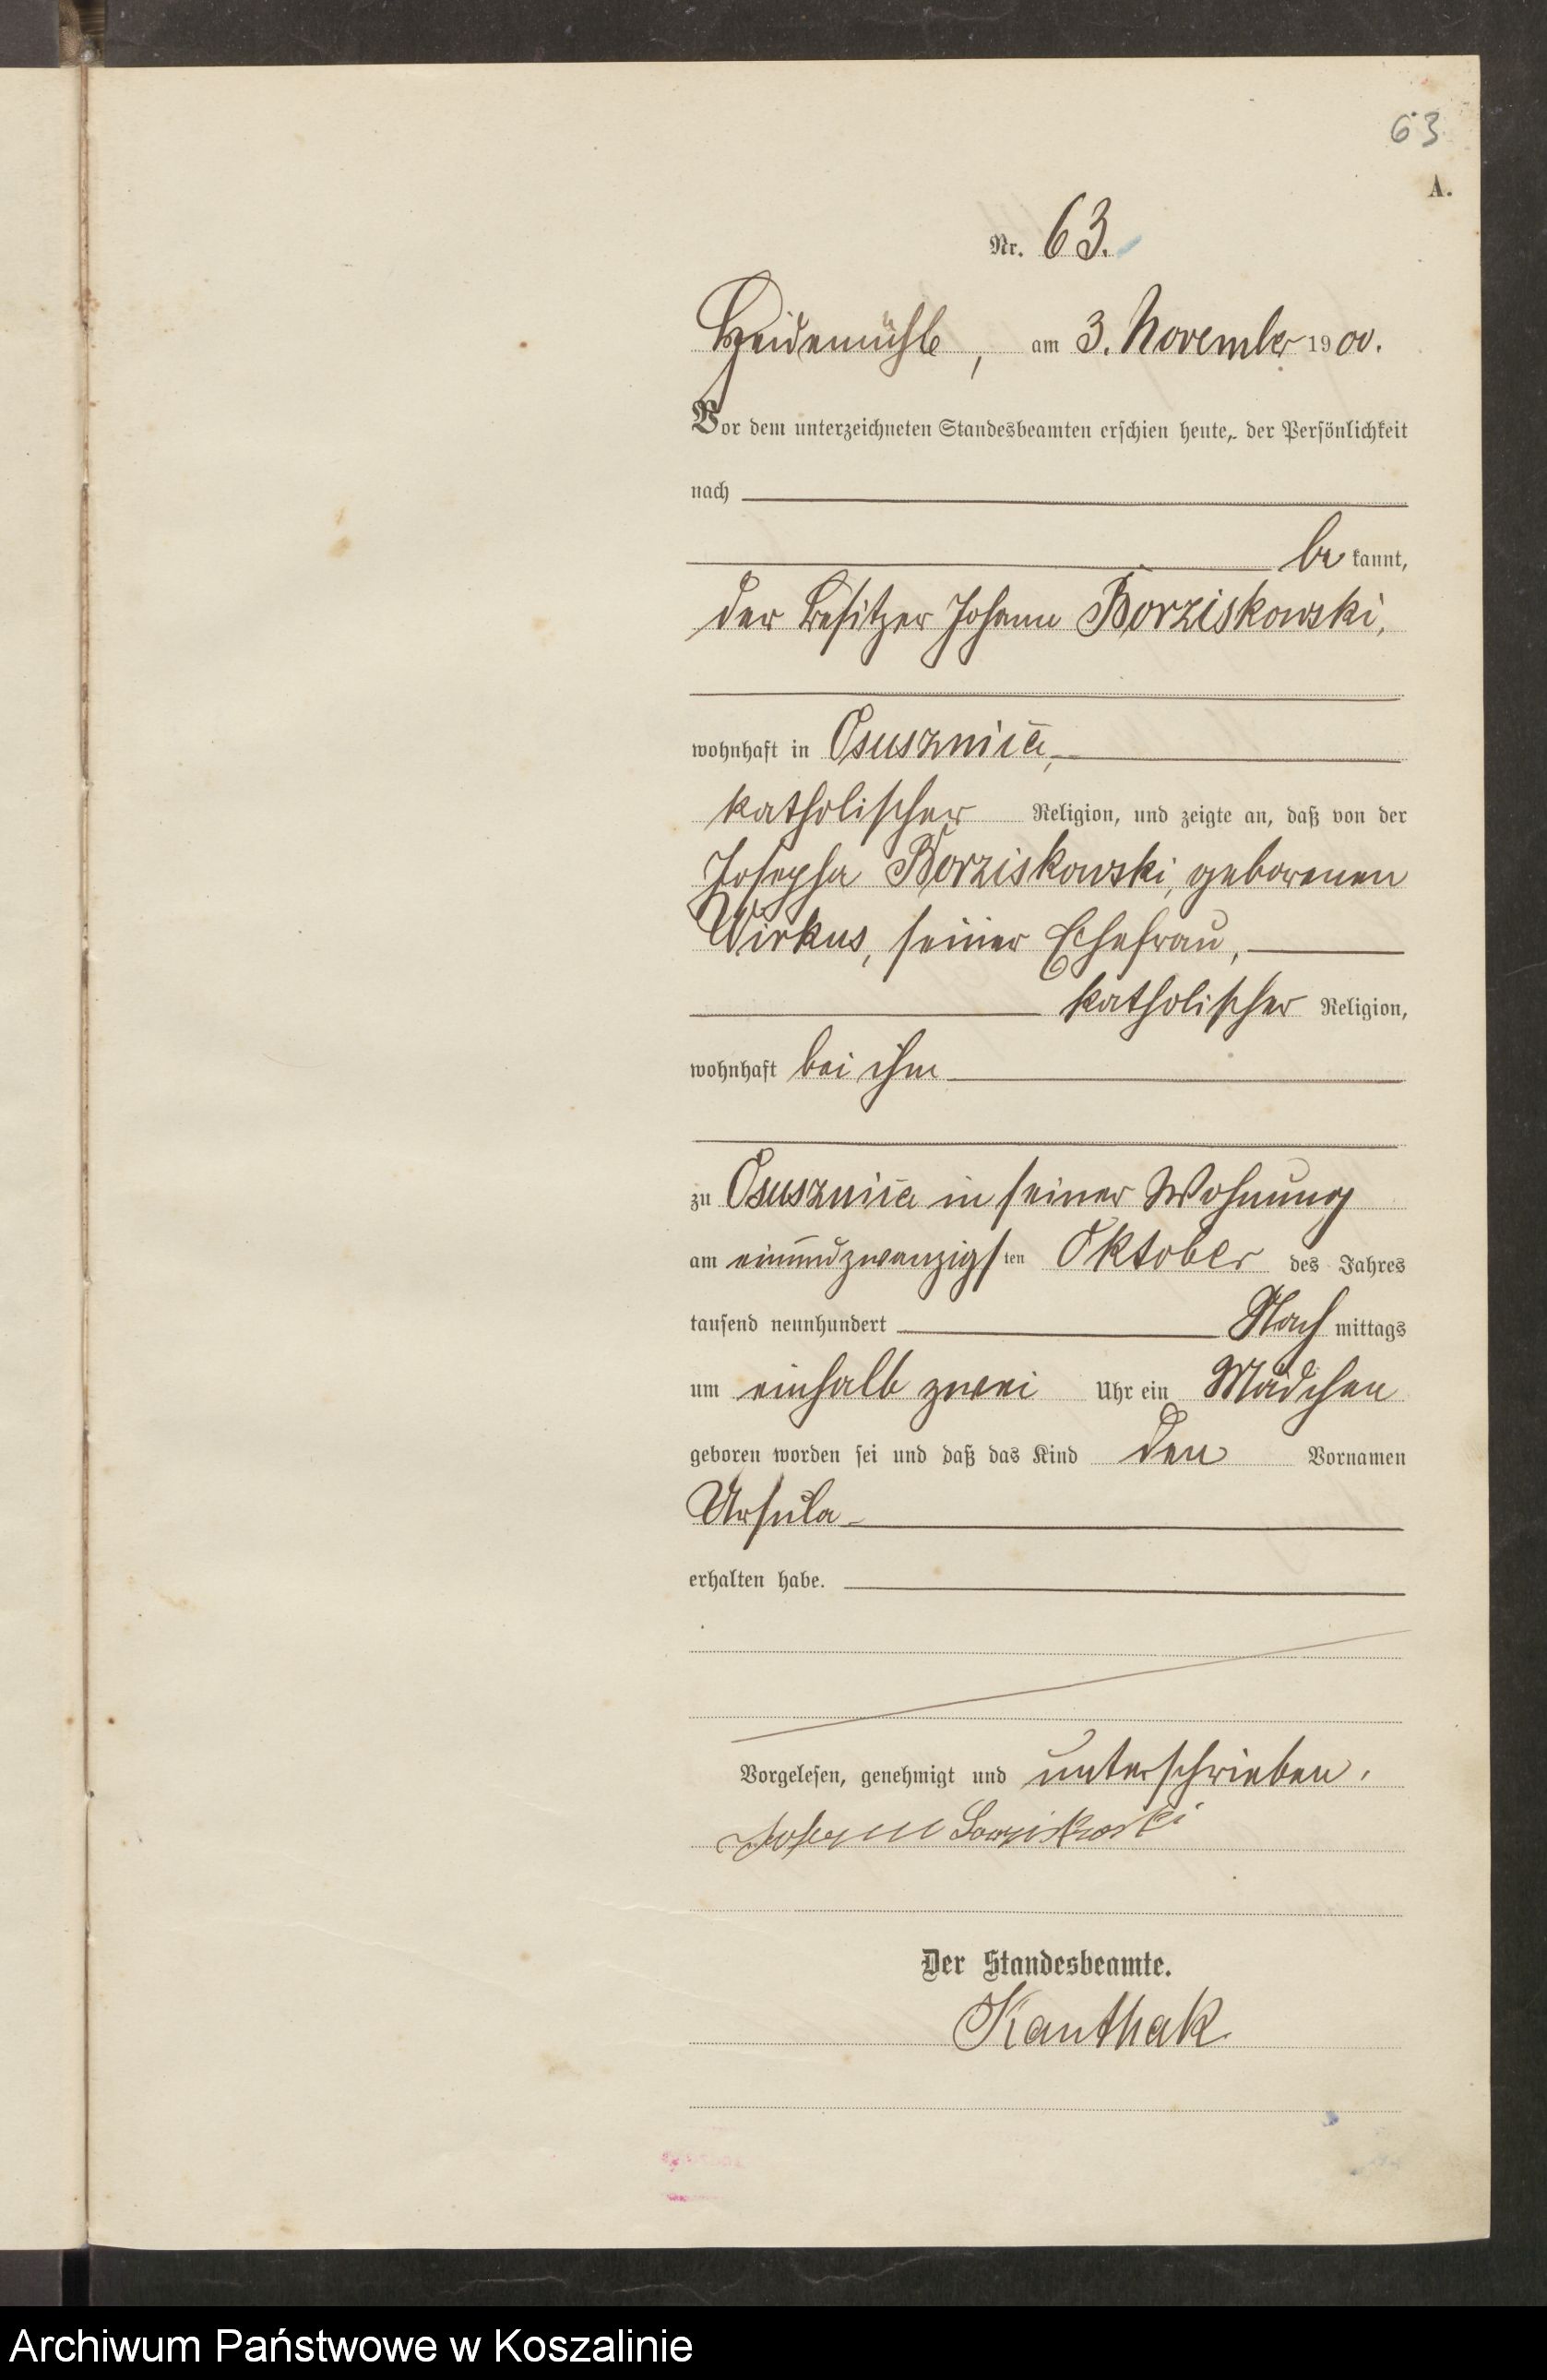 63
A.
Nr. 63.
Heidemühl, am 3. November 1900.
Vor dem unterzeichneten Standesbeamten erschien heute, der Persönlichkeit
nach
be kannt,
der Besitzer Johann Borziskowski,
wohnhaft in Osusznica,
katholischer Religion, und zeigte an, daß von der
Josepha Borziskowski, geborenen
Wirkus, seiner Ehefrau,
katholischer Religion,
wohnhaft bei ihm
zu Osusznica in seiner Wohnung
am einundzwanzigsten Oktober des Jahres
tausend neunhundert Nachmittags
um einhalb zwei Uhr ein Mädchen
geboren worden sei und daß das Kind den Vornamen
Ursula
erhalten habe.
Vorgelesen, genehmigt und unterschrieben.
Der Standesbeamte.
Kanthak
Archiwum Państwowe w Koszalinie